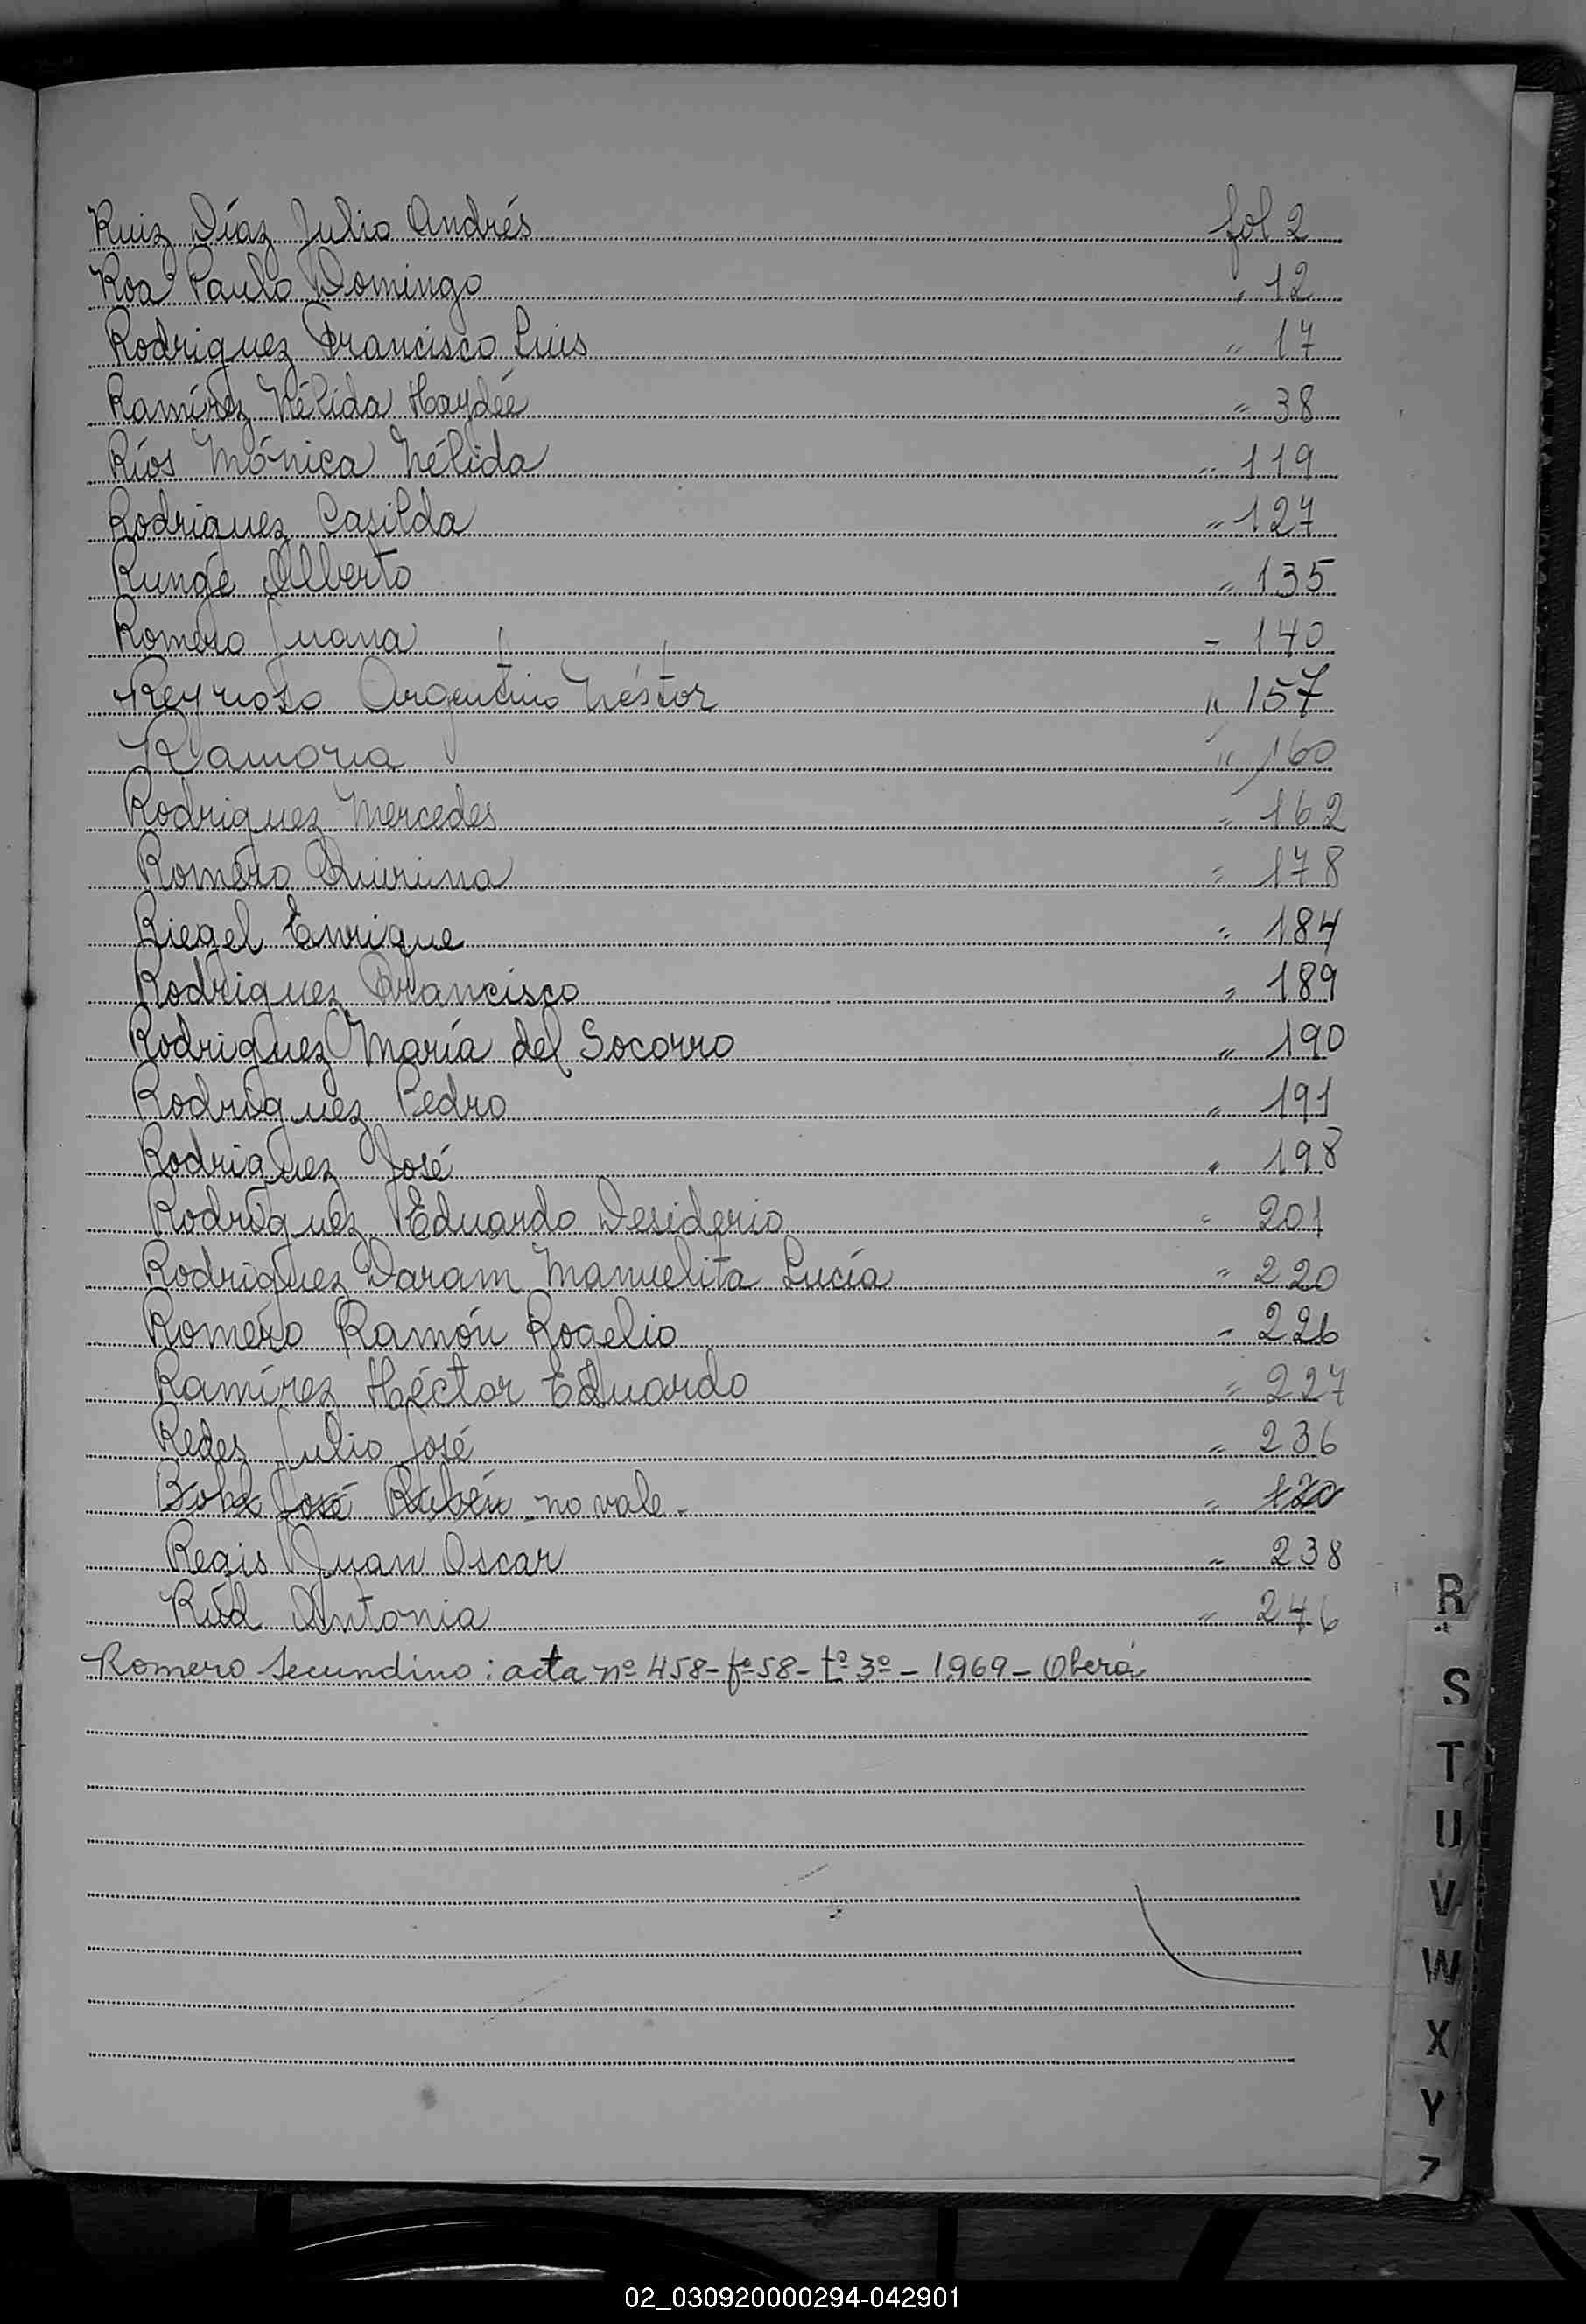 Ruiz Díaz Julio Andrés fol 2
Roa Paulo Domingo " 12
Rodriguez Francisco Luis " 17
Ramírez Nélida Haydée " 38
Ríos Mónica Nélida " 119
Rodriguez Casilda " 127
Runge Alberto " 135
Romero Juana - 140
Reynoso Argentino Néstor " 157
Ramona " 160
Rodriguez Mercedes " 162
Romero Quirina " 178
Riegel Enrique " 184
Rodriguez Francisco " 189
Rodriguez María del Socorro " 190
Rodriguez Pedro " 191
Rodriguez José " 198
Rodriguez Eduardo Desiderio " 201
Rodriguez Daram Manuelita Lucía " 220
Romero Ramón Rogelio " 226
Ramírez Héctor Eduardo " 227
Redes Julio José " 236
José Rubén no vale - " 120
Regis Juan Oscar " 238
Rud Antonia " 246
Romero Secundino: acta nº 458 - fº 58 - tº 3º - 1969 - Oberá
R
S
T
U
V
W
X
Y
Z
02_030920000294-042901